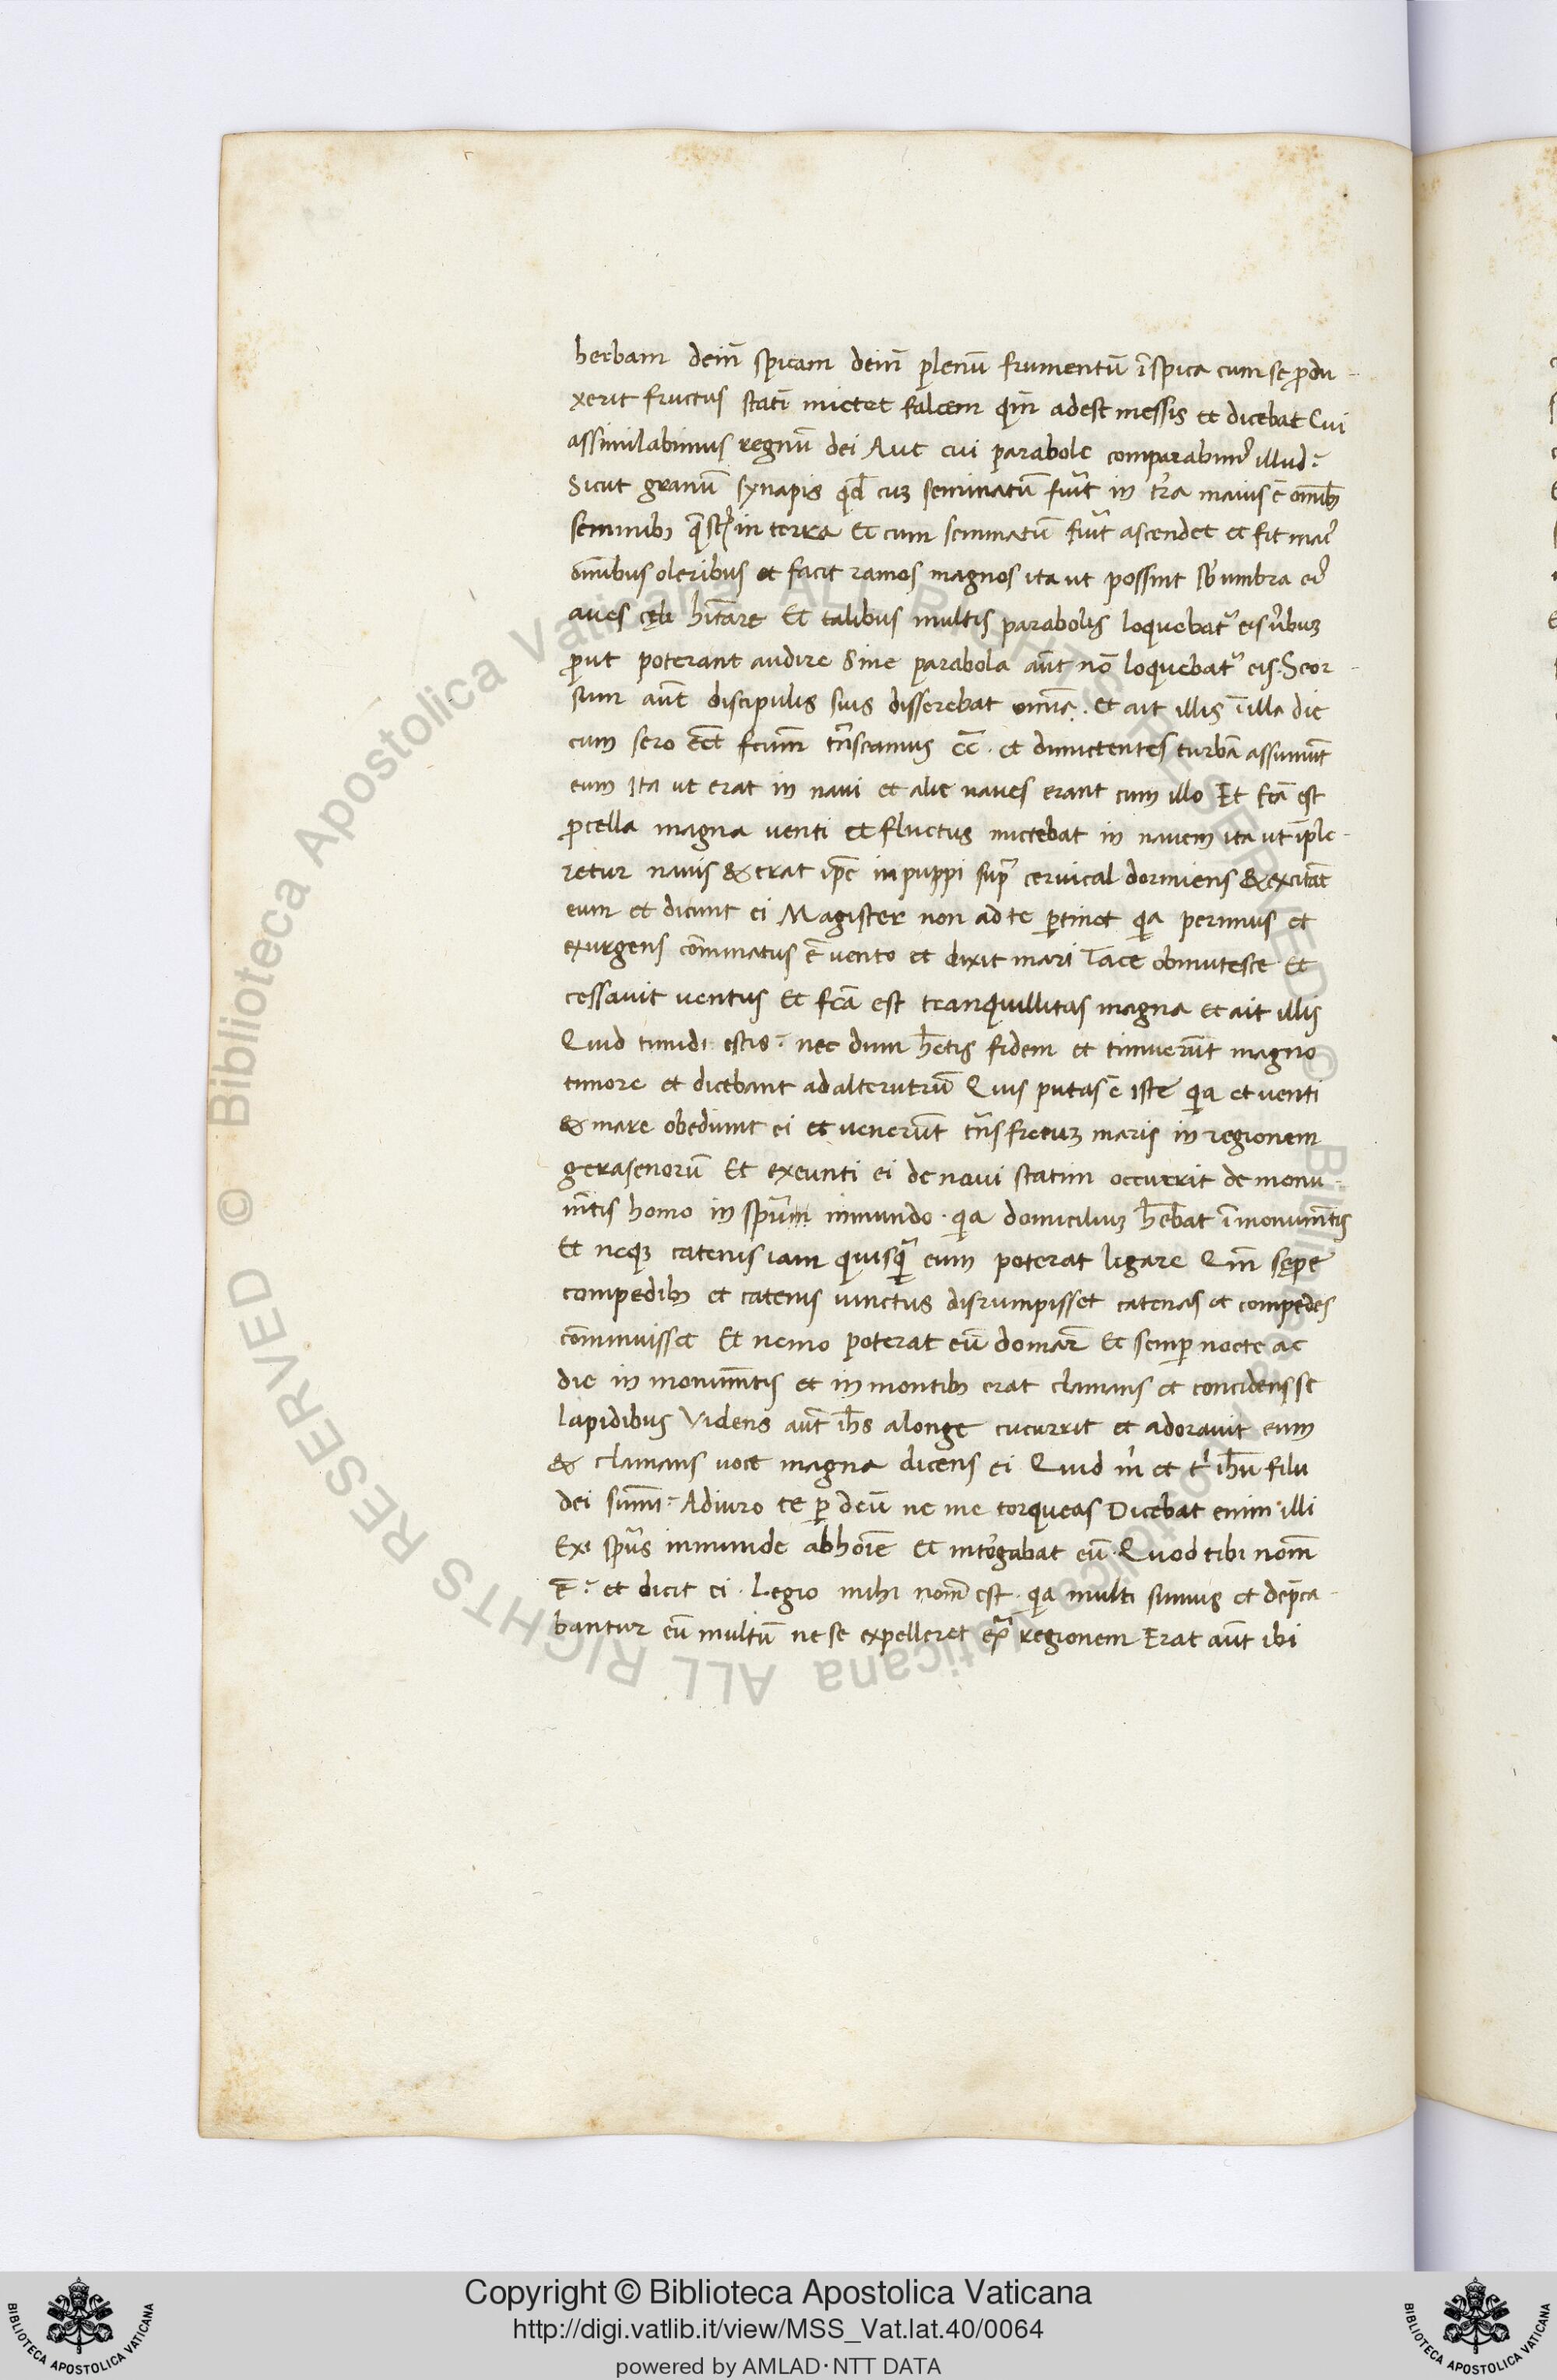 herbam deiñ spicam deiñ plenū frumentū ī spica cum sę ꝓdu-
xerit fructus statī mictet falcem qm̄ adest messis et dicebat Cui
assimilabimus regnū dei Aut cui parabole comparabimꝰ illud?
Sicut granū synapis qd̄ cuꝫ seminatū fūit in tr̄a maius ē omībꝫ
seminibꝫ in terra Et cum seminatū fūit ascendet et fit maiꝰ
om̄ibus oleribus et facit ramos magnos ita ut possint sb̄ umbra eiꝰ
aues cęli hītare Et talibus multis parabolis loquebatᷣ eis ūbuꝫ
ꝓut poterant audire Sine parabola aūt nō loquebatᷣ eis. Seor-
sum aūt discipulis suis disserebat omīa. et ait illis ī illa die
cum sero eēt fcūm trn̄seamus cc̄. et dimictentes turbā assumūt
eum Ita ut erat in naui et alie naues erant cum illo Et fcā est
ꝓcella magna uenti et fluctus mictebat in nauem ita ut īple-
retur nauis & erat ip̄e in puppi supᷓ ceruical dormiens & excitāt
eum et dicunt ei Magister non ad te ꝑtinet qia perimus et
exurgens cōminatus ē uento et dixit mari Tace obmutesce Et
cessauit uentus Et fcā est tranquillitas magna et ait illis
Quid timidi estis? nec dum hētis fidem et timuerūt magno
timore et dicebant ad alterutrū Quis putas ē iste qia et uenti
& mare obediunt ei et uenerūt trᷓns fretuꝫ maris in regionem
gerasenorū Et exeunti ei de naui statim occurrit de monu-
m̄tis homo in spūm inmundo. qia domiciliuꝫ hēbat ī monum̄tis
Et neqꝫ catenis iam quisqᷓ eum poterat ligare Qm̄ sępe
compedibꝫ et catenis uinctus disrumpisset catenas et compedes
cōminuisset Et nemo poterat eū domar̄ Et semꝑ nocte ac
die in monum̄tis et in montibꝫ erat clamans et concidens se
lapidibus Videns aūt ih̄s a longe cucurrit et adorauit eum
& clamans uoce magna dicens ei Quid m̄ et tᶦ ih̄u fili
dei summ̄i? Adiuro te ꝑ deū ne me torqueas Dicebat enim illi
Exi spūs inmunde ab hoīe Et int̄rogabat eū. Quod tibi nom̄
ē? et dicit ei. Legio mihi nom̄ est. qia multi sumus et dep̄ca-
bantur eū multū ne se expelleret exᷓ regionem Erat aūt ibi
© Biblioteca Apostolica Vaticana ALL RIGHTS RESERVED © Biblioteca Apostolica Vaticana ALL RIGHTS RESERVED
BIBLIOTECA APOSTOLICA VATICANA
Copyright © Biblioteca Apostolica Vaticana
http://digi.vatlib.it/view/MSS_Vat.lat.40/0064
powered by AMLAD·NTT DATA
BIBLIOTECA APOSTOLICA VATICANA